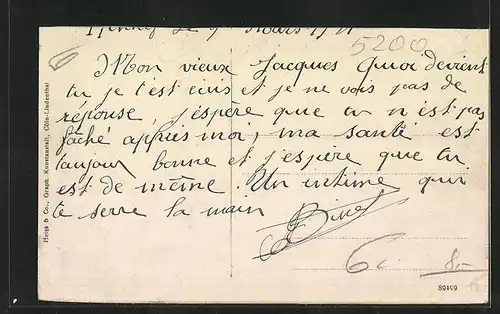 le 9 Mars 19
5200
Mon vieux Jacques Quoi devient
tu je t'est ecris et je ne vois pas de
réponse, j'espère que tu n'est pas
fâché appres moi, ma santé est
toujour bonne et j'espère que tu
est de même. Un intime qui
te serre la main
Heiss & Co., Graph. Kunstanstalt, Cöln-Lindenthal
89499